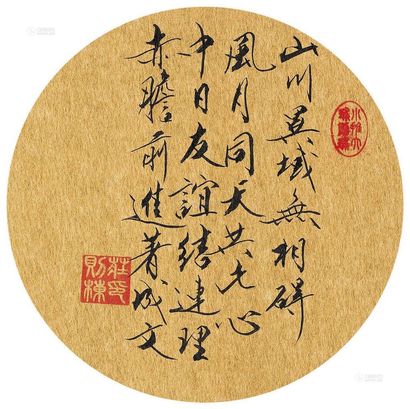 山川異域無相礙
風月同天共七心
中日友誼結連理
赤膽前進著成文
莊則棟印